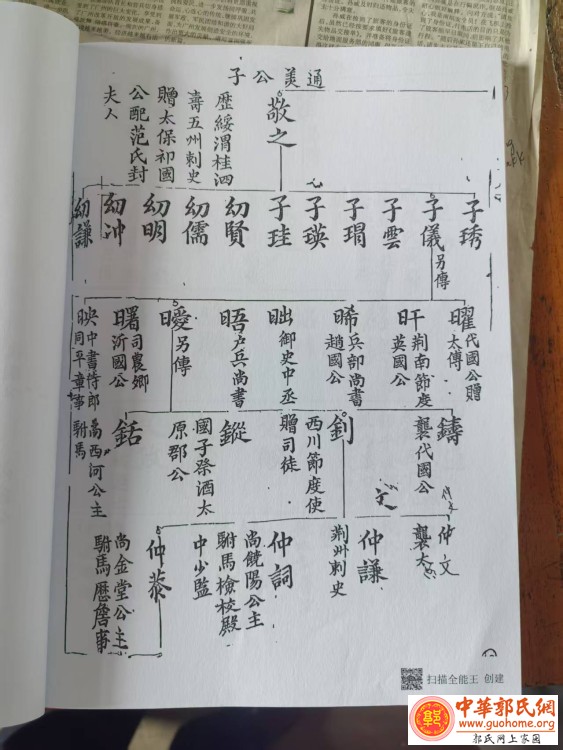 通美公子
敬之
歷綏渭桂泗
壽五州刺史
贈太保祁國
公配范氏封
夫人
子琇
子儀
另傳
子雲
子珥
子瑛
子珪
幼賢
幼儒
幼明
幼冲
幼謙
曜
代國公贈
太傅
旰
荆南節度
英國公
晞
兵部尚書
趙國公
昢
御史中丞
晤
户兵尚書
曖
另傳
曙
司農卿
沂國公
映
中書侍郎
同平章事
鑄
襲代國公
釗
西川節度使
贈司徒
鏦
國子祭酒太
原郡公
銛
尚西河公主
駙馬
仲文
襲太
仲謙
荆州刺史
仲詞
尚饒陽公主
駙馬檢校殿
中少監
仲恭
尚金堂公主
駙馬歷詹事
文
扫描全能王 创建
中華郭氏網
www.guohome.org
郭氏网上家園